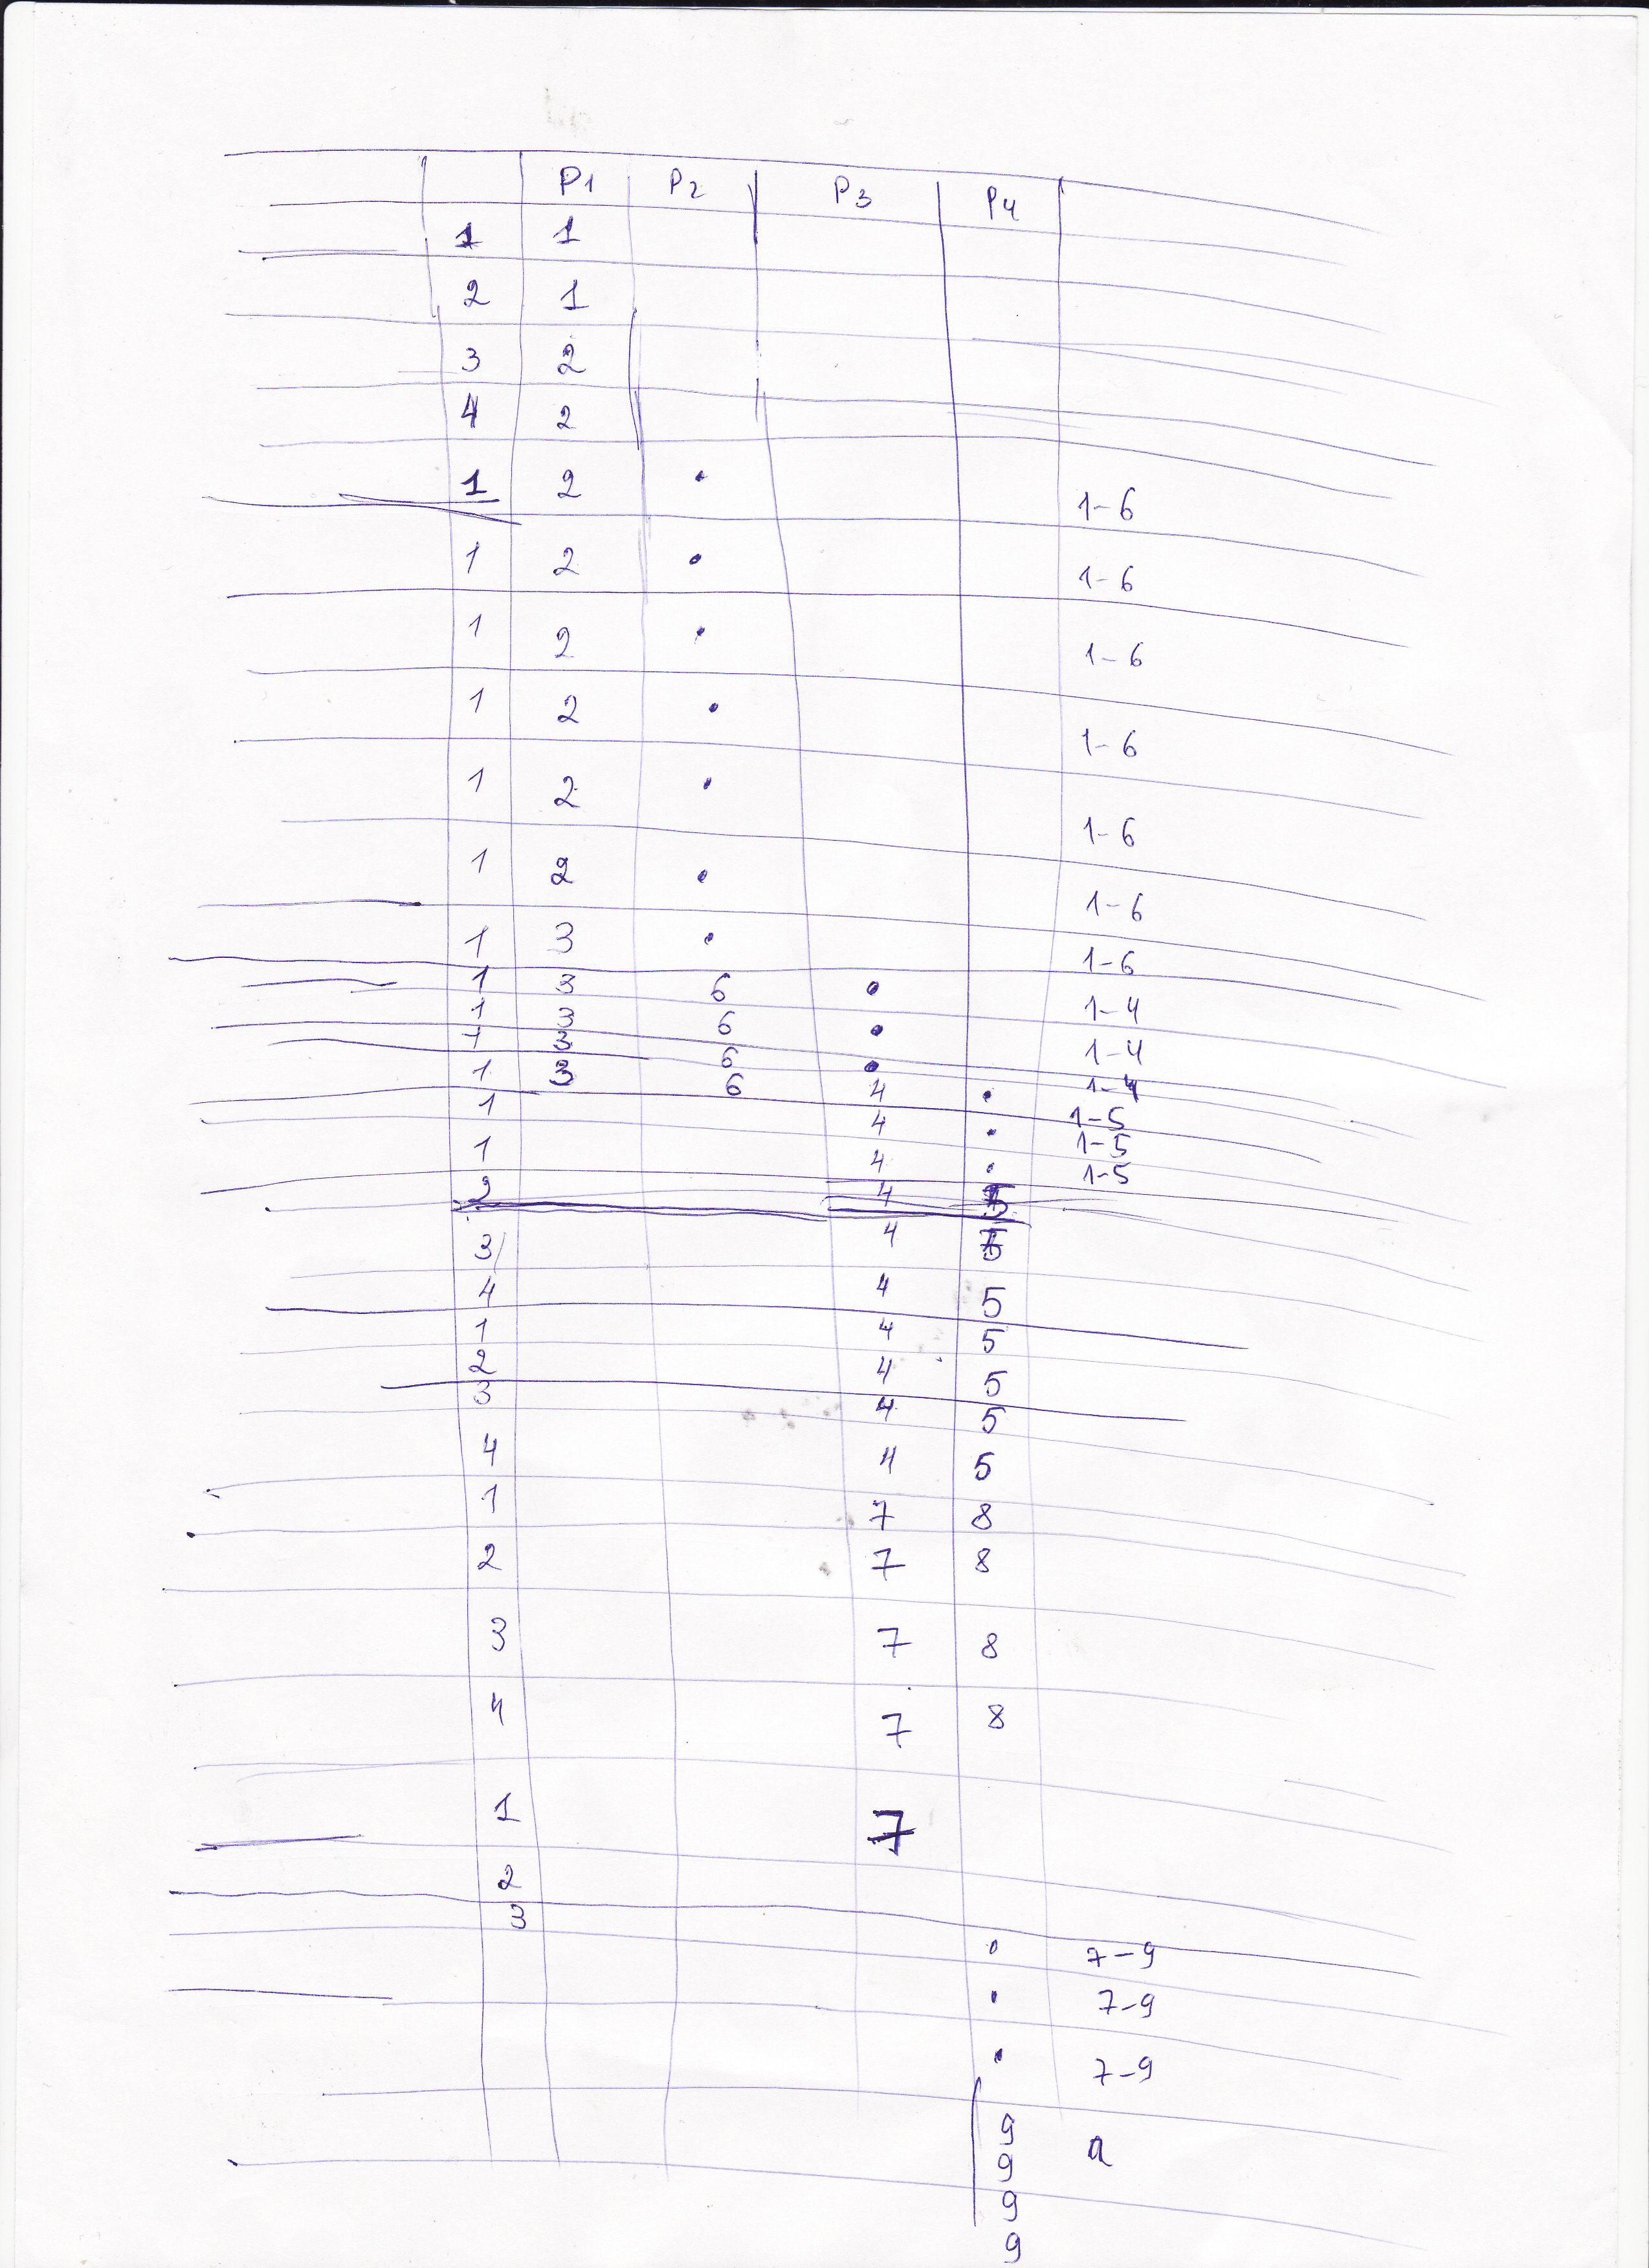 P1 P2 P3 P4
1 1
2 1
3 2
4 2
1 2 • 1-6
1 2 • 1-6
1 2 • 1-6
1 2 • 1-6
1 2 • 1-6
1 2 • 1-6
1 3 • 1-6
1 3 6 • 1-4
1 3 6 • 1-4
1 3 6 • 1-4
1 3 6 4 • 1-5
1 4 • 1-5
1 4 • 1-5
2 4 5
3 4 5
4 4 5
1 4 5
2 4 5
3 4 5
4 4 5
1 7 8
2 7 8
3 7 8
4 7 8
1 7
2
3
• 7-9
• 7-9
• 7-9
9
9
9
9